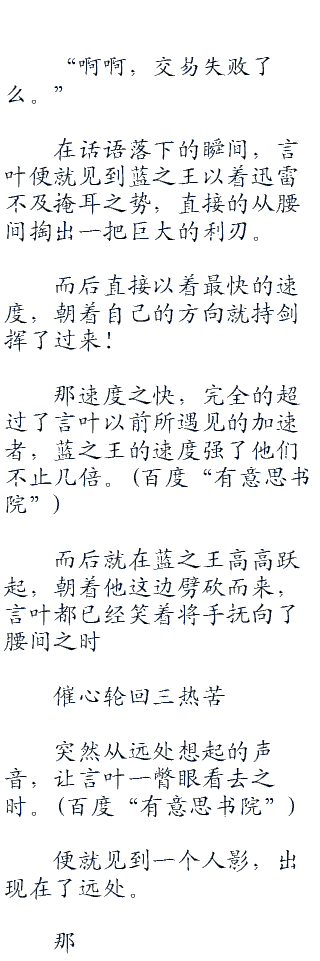 “啊啊，交易失败了
么。”
在话语落下的瞬间，言
叶便就见到蓝之王以着迅雷
不及掩耳之势，直接的从腰
间掏出一把巨大的利刃。
而后直接以着最快的速
度，朝着自己的方向就持剑
挥了过来！
那速度之快，完全的超
过了言叶以前所遇见的加速
者，蓝之王的速度强了他们
不止几倍。(百度“有意思书
院”)
而后就在蓝之王高高跃
起，朝着他这边劈砍而来，
言叶都已经笑着将手抚向了
腰间之时
催心轮回三热苦
突然从远处想起的声
音，让言叶一瞥眼看去之
时。(百度“有意思书院”)
便就见到一个人影，出
现在了远处。
那